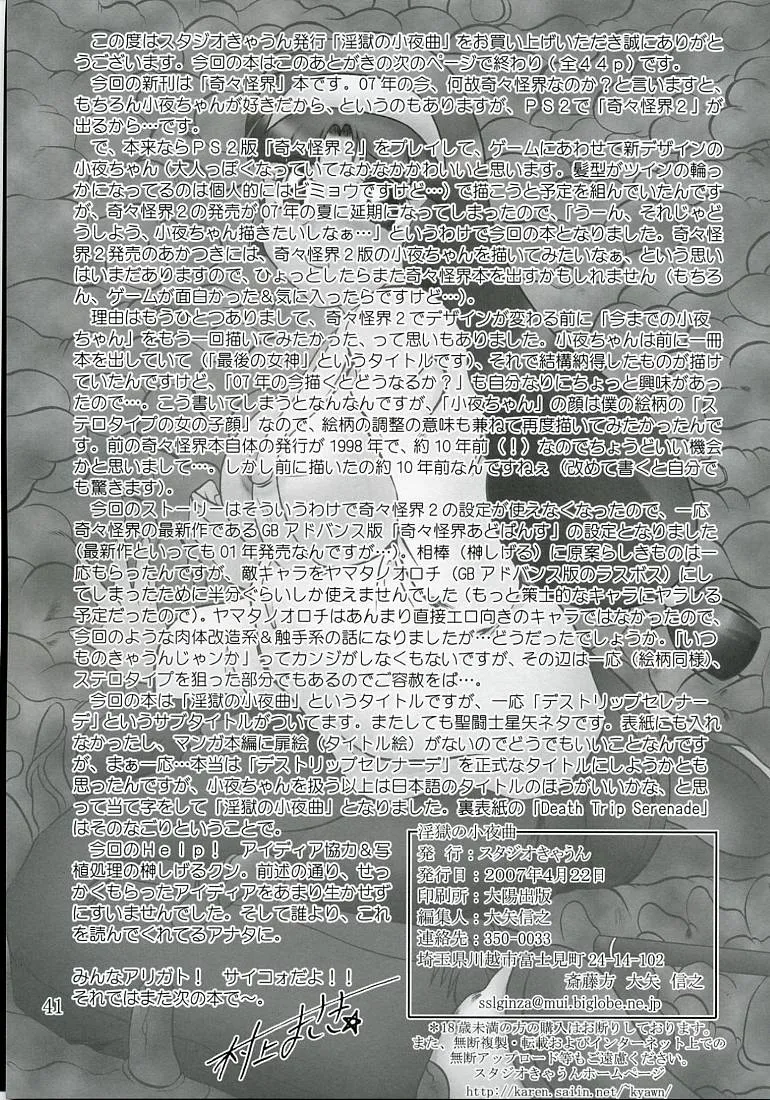 この度はスタジオきゃうん発行「淫獄の小夜曲」をお買い上げいただき誠にありがと
うございます。今回の本はこのあとがきの次のページで終わり（全４４ｐ）です。
今回の新刊は「奇々怪界」本です。０７年の今、何故奇々怪界なのか？と言いますと、
もちろん小夜ちゃんが好きだから、というのもありますが、ＰＳ２で「奇々怪界２」が
出るから…です。
で、本来ならＰＳ２版「奇々怪界２」をプレイして、ゲームにあわせて新デザインの
小夜ちゃん（大人っぽくなっていてなかなかかわいいと思います。髪型がツインの輪っ
かになってるのは個人的にはビミョウですけど…）で描こうと予定を組んでいたんです
が、奇々怪界２の発売が０７年の夏に延期になってしまったので、「うーん、それじゃど
うしよう、小夜ちゃん描きたいしなぁ…」というわけで今回の本となりました。奇々怪
界２発売のあかつきには、奇々怪界２版の小夜ちゃんを描いてみたいなぁ、という思い
はいまだありますので、ひょっとしたらまた奇々怪界本を出すかもしれません（もちろ
ん、ゲームが面白かった＆気に入ったらですけど…）。
理由はもうひとつありまして、奇々怪界２でデザインが変わる前に「今までの小夜
ちゃん」をもう一回描いてみたかった、って思いもありました。小夜ちゃんは前に一冊
本を出していて（「最後の女神」というタイトルです）、それで結構納得したものが描け
ていたんですけど、「０７年の今描くとどうなるか？」も自分なりにちょっと興味があっ
たので…。こう書いてしまうとなんなんですが、「小夜ちゃん」の顔は僕の絵柄の「ス
テロタイプの女の子顔」なので、絵柄の調整の意味も兼ねて再度描いてみたかったんで
す。前の奇々怪界本自体の発行が1998年で、約10年前（！）なのでちょうどいい機会
かと思いまして…。しかし前に描いたの約10年前なんですねぇ（改めて書くと自分で
も驚きます）。
今回のストーリーはそういうわけで奇々怪界２の設定が使えなくなったので、一応
奇々怪界の最新作であるGBアドバンス版「奇々怪界あどばんす」の設定となりました
（最新作といっても01年発売なんですが…）。相棒（榊しげる）に原案らしきものは一
応もらったんですが、敵キャラをヤマタノオロチ（GBアドバンス版のラスボス）にし
てしまったために半分ぐらいしか使えませんでした（もっと策士的なキャラにヤラレる
予定だったので）。ヤマタノオロチはあんまり直接エロ向きのキャラではなかったので、
今回のような肉体改造系＆触手系の話になりましたが…どうだったでしょうか。「いつ
ものきゃうんじゃンか」ってカンジがしなくもないですが、その辺は一応（絵柄同様）、
ステロタイプを狙った部分でもあるのでご容赦をば…。
今回の本は「淫獄の小夜曲」というタイトルですが、一応「デストリップセレナー
デ」というサブタイトルがついてます。またしても聖闘士星矢ネタです。表紙にも入れ
なかったし、マンガ本編に扉絵（タイトル絵）がないのでどうでもいいことなんです
が、まぁ一応…本当は「デストリップセレナーデ」を正式なタイトルにしようかとも
思ったんですが、小夜ちゃんを扱う以上は日本語のタイトルのほうがいいかな、と思
って当て字をして「淫獄の小夜曲」となりました。裏表紙の「Death Trip Serenade」
はそのなごりということで。
今回のＨｅｌｐ！　アイディア協力＆写
植処理の榊しげるクン。前述の通り、せっ
かくもらったアイディアをあまり生かせず
にすいませんでした。そして誰より、これ
を読んでくれてるアナタに。
みんなアリガト！　サイコォだよ！！
それではまた次の本で～。
村上まさき☆
淫獄の小夜曲
発　行：スタジオきゃうん
発行日：2007年4月22日
印刷所：大陽出版
編集人：大矢信之
連絡先：350-0033
埼玉県川越市富士見町24-14-102
斎藤方　大矢　信之
sslginza@mui.biglobe.ne.jp
＊18歳未満の方の購入はお断りしております。
また、無断複製・転載およびインターネット上での
無断アップロード等もご遠慮ください。
スタジオきゃうんホームページ
http://karen.saiin.net/~kyawn/
41